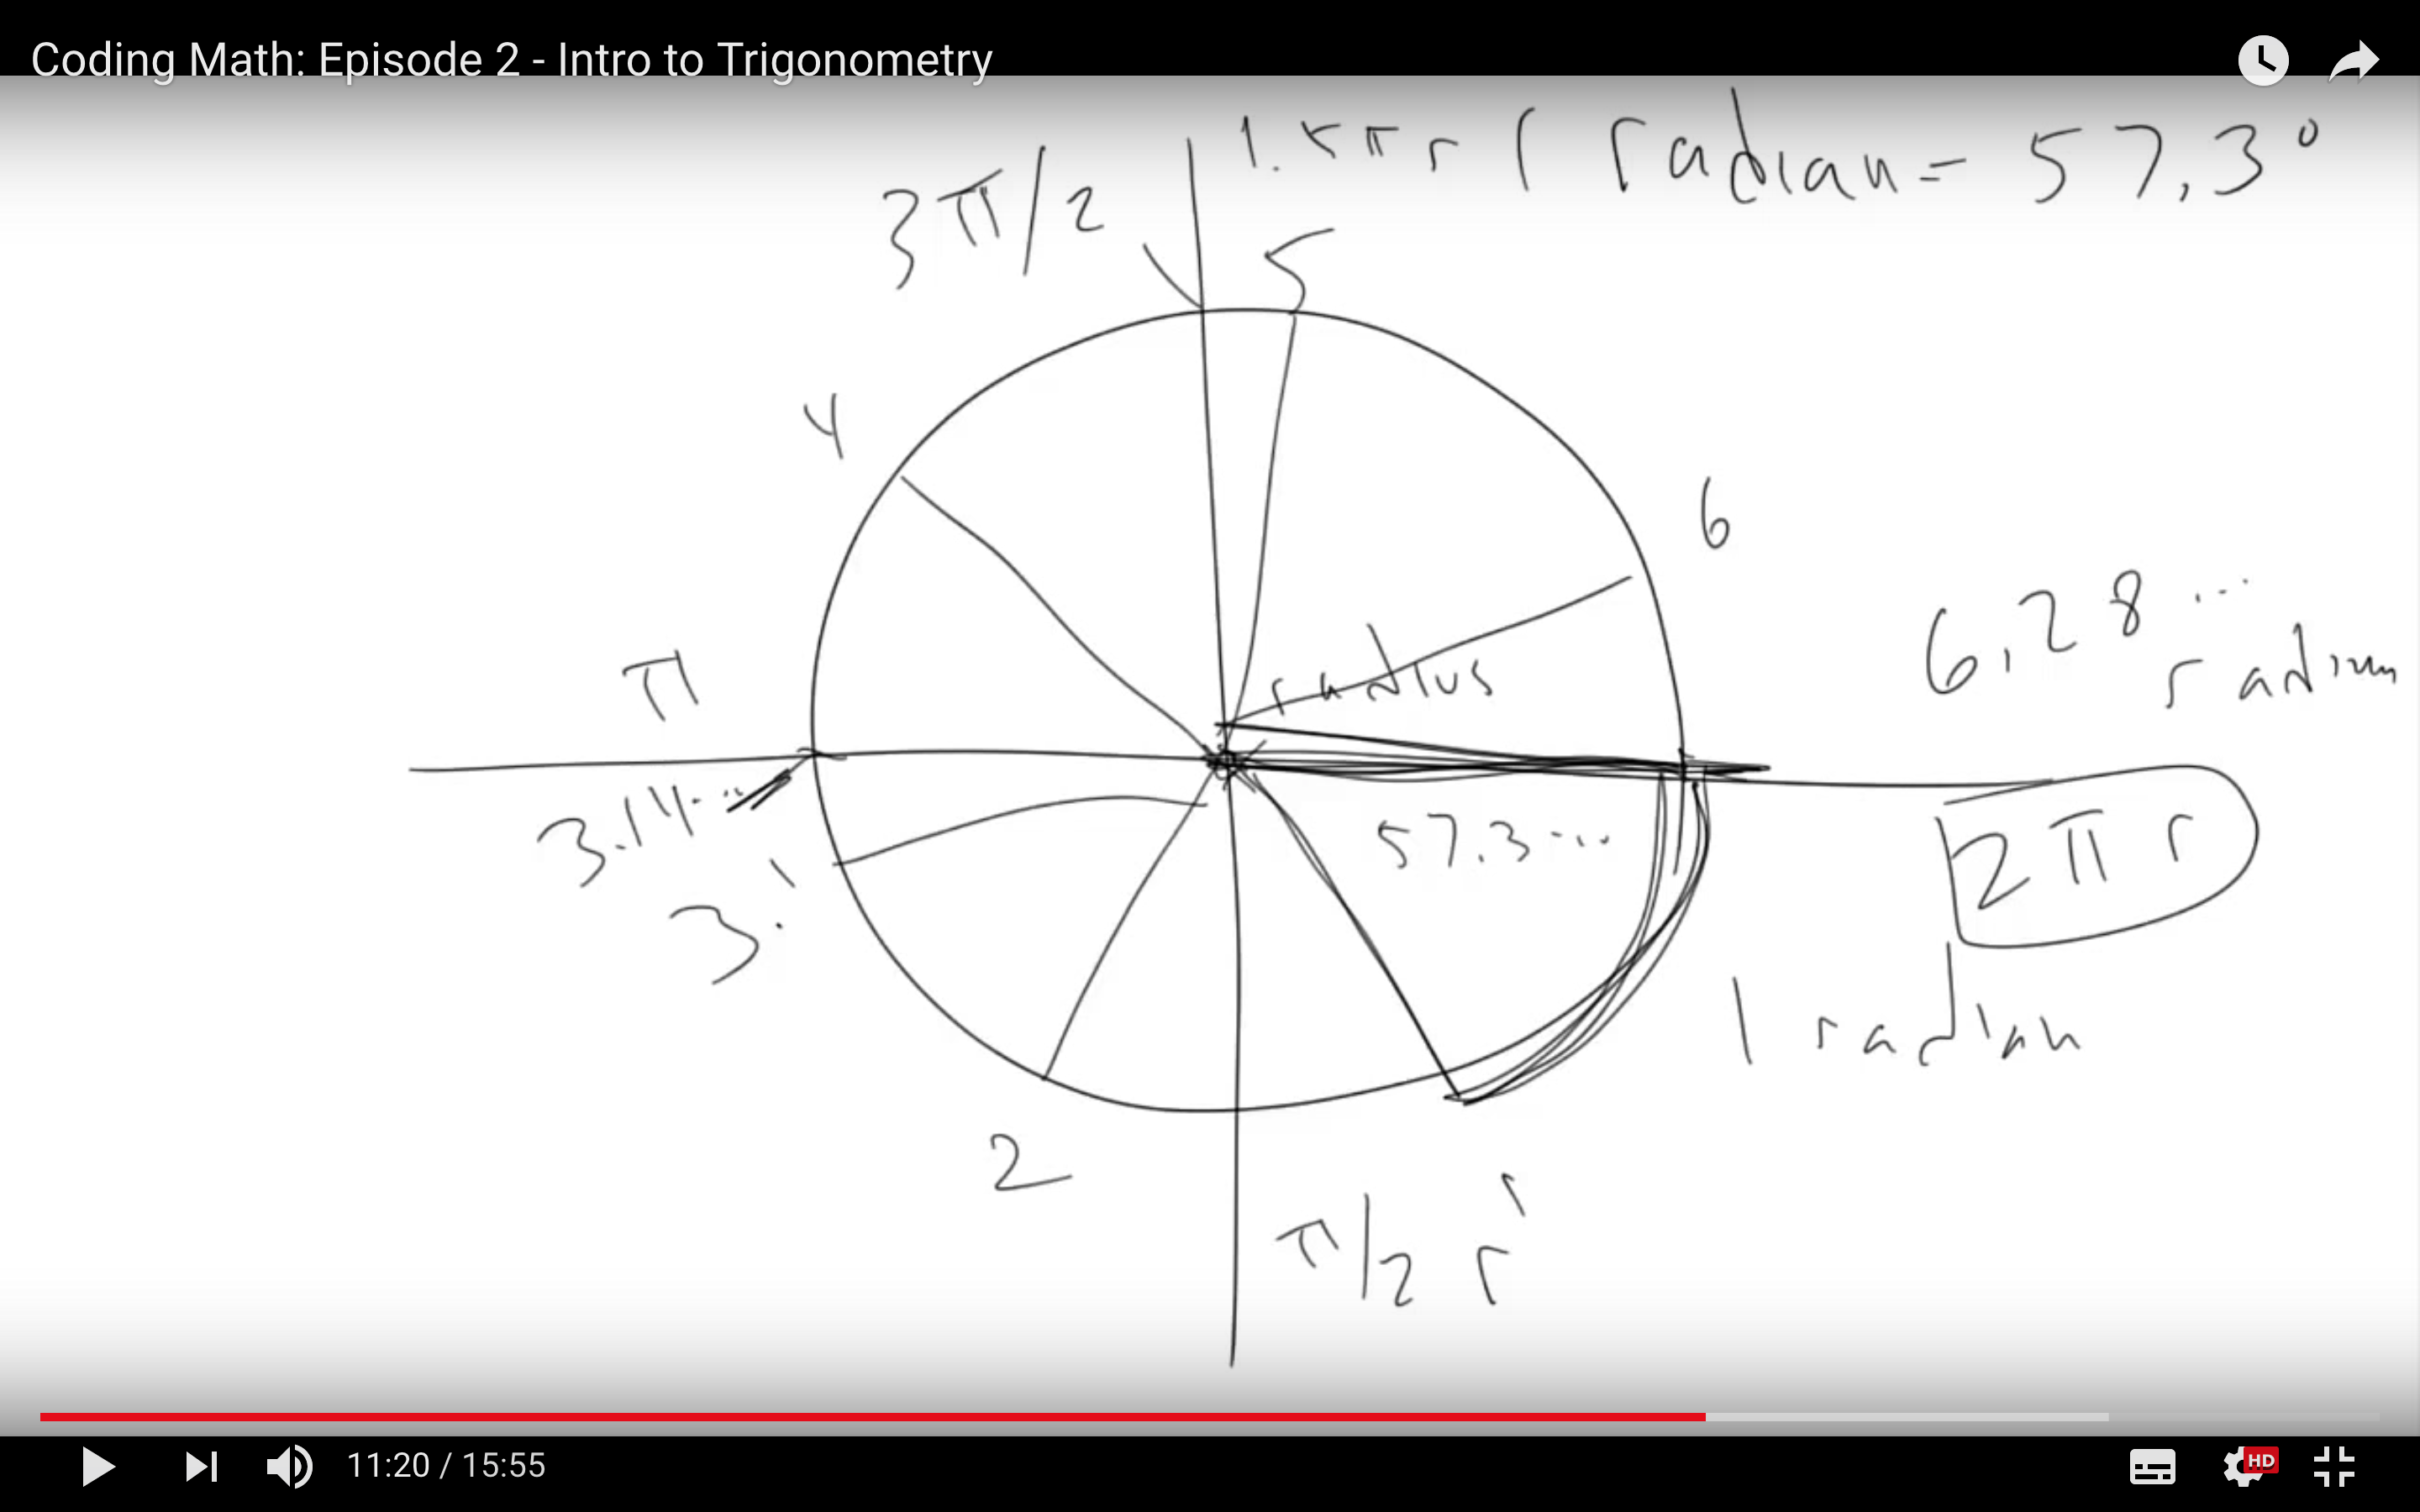 Coding Math: Episode 2 - Intro to Trigonometry
1.5 π r
1 radian = 57.3°
3π/2
5
4
6
6.28...
π
radius
3.14...
57.3...
2πr
3.
1 radian
2
π/2 r
11:20 / 15:55
HD